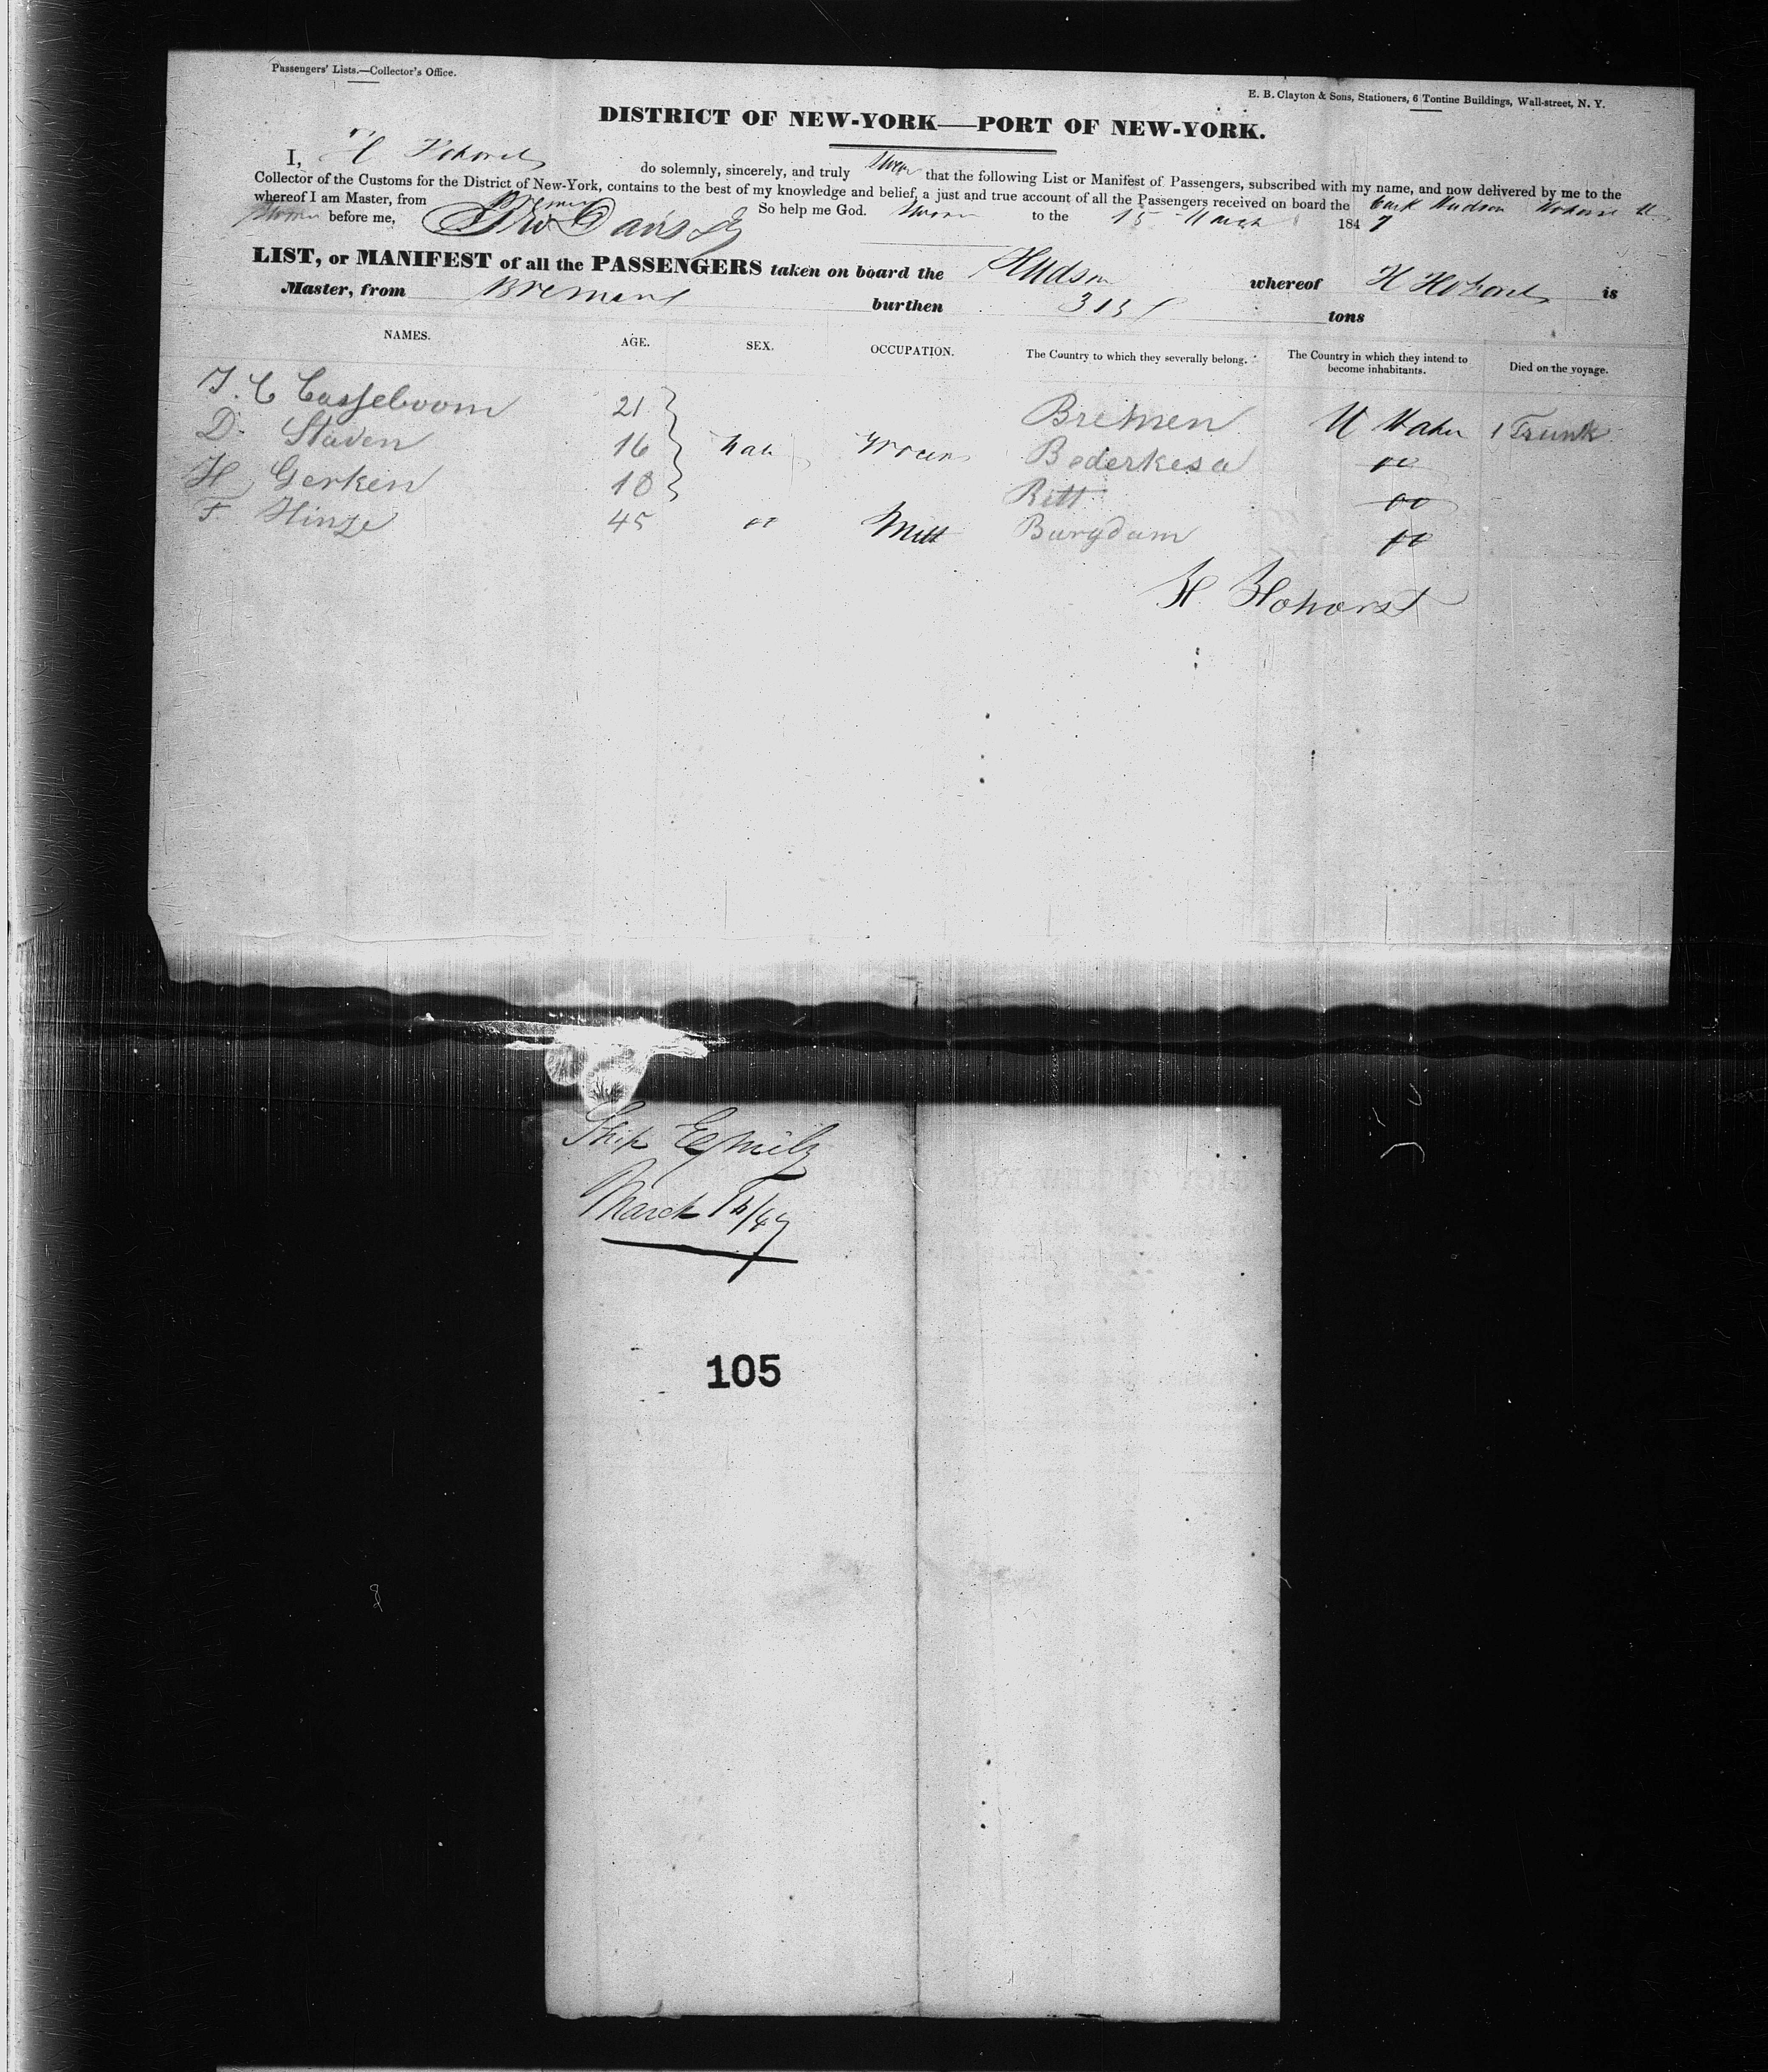 Passengers' Lists.—Collector's Office.
E. B. Clayton & Sons, Stationers, 6 Tontine Buildings, Wall-street, N. Y.
DISTRICT OF NEW-YORK—PORT OF NEW-YORK.
I, H Hohorst do solemnly, sincerely, and truly swear that the following List or Manifest of Passengers, subscribed with my name, and now delivered by me to the
Collector of the Customs for the District of New-York, contains to the best of my knowledge and belief, a just and true account of all the Passengers received on board the Bark Hudson
whereof I am Master, from Bremen So help me God.
Sworn before me, Davis Sworn to the 15 March 1847
LIST, or MANIFEST of all the PASSENGERS taken on board the Hudson whereof H Hohorst is
Master, from Bremen burthen 313 tons
NAMES. AGE. SEX. OCCUPATION. The Country to which they severally belong. The Country in which they intend to become inhabitants. Died on the voyage.
J. C Casseboom 21 Bremen U States 1 Trunk
D. Staden 16 Male Grocer Bederkesa "
H Gerken 18 Ritt "
F. Hinze 45 " Burgdam "
H. Hohorst
Ship Emily
March 15/47
105